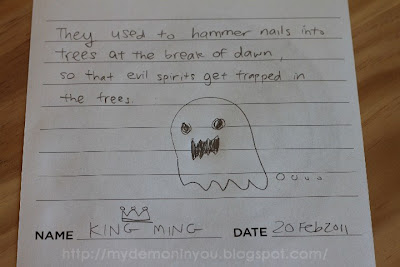 They used to hammer nails into
trees at the break of dawn,
so that evil spirits get trapped in
the trees.
NAME KING MING DATE 20 Feb 2011
http://mydemoninyou.blogspot.com/